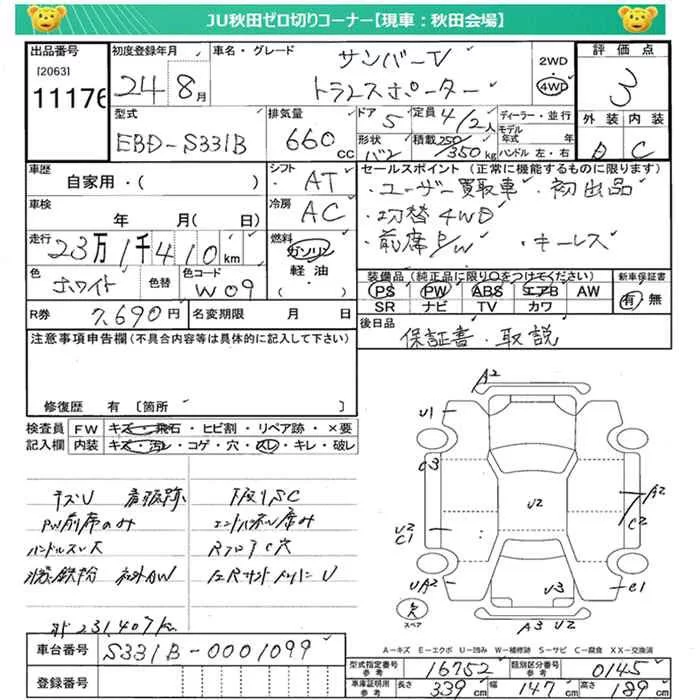 JU秋田ゼロ切りコーナー【現車：秋田会場】
出品番号
[2063]
11176
初度登録年月
24 8月
車名・グレード
サンバーTV
トランスポーター
2WD
4WD
評価点
3
外装 内装
D C
型式
EBD-S331B
排気量
660 CC
ドア
5
形状
バン
定員
4/2人
積載
250/350kg
ディーラー・並行
モデル年式 年
ハンドル 左・右
車歴
自家用・( )
シフト
AT
車検
年 月( 日)
冷房
AC
走行
23万1千410km
燃料
ガソリン
軽油
( )
色
ホワイト
色替
色コード
W09
R券
7,690円
名変期限 月 日
セールスポイント(正常に機能するものに限ります)
・ユーザー買取車・初出品
・切替4WD
・前席P/W ・キーレス
装備品(純正品に限り○をつけてください)
PS PW ABS エアB AW
SR ナビ TV カワ
新車保証書
有・無
後日品
保証書・取説
注意事項申告欄(不具合内容等は具体的に記入して下さい)
修復歴 有 〔箇所 〕
検査員記入欄
FW キズ・飛石・ヒビ割・リペア跡・×要
内装 キズ・汚レ・コゲ・穴・スレ・キレ・破レ
PW前席のみ
ハンドルスレ大
社外AW
231,407km
車台番号
S331B-0001099
登録番号
A2
U1
C3
U2
C1
UA2
U2
A2
C2
C1
U3
A3 U2
スペア
A-キズ E-エクボ U-凹み W-補修跡 S-サビ C-腐食 XX-交換済
型式指定番号
参考
16752
類別区分番号
参考
0145
車庫証明用
参考
長さ 339cm
幅 147cm
高さ 189cm